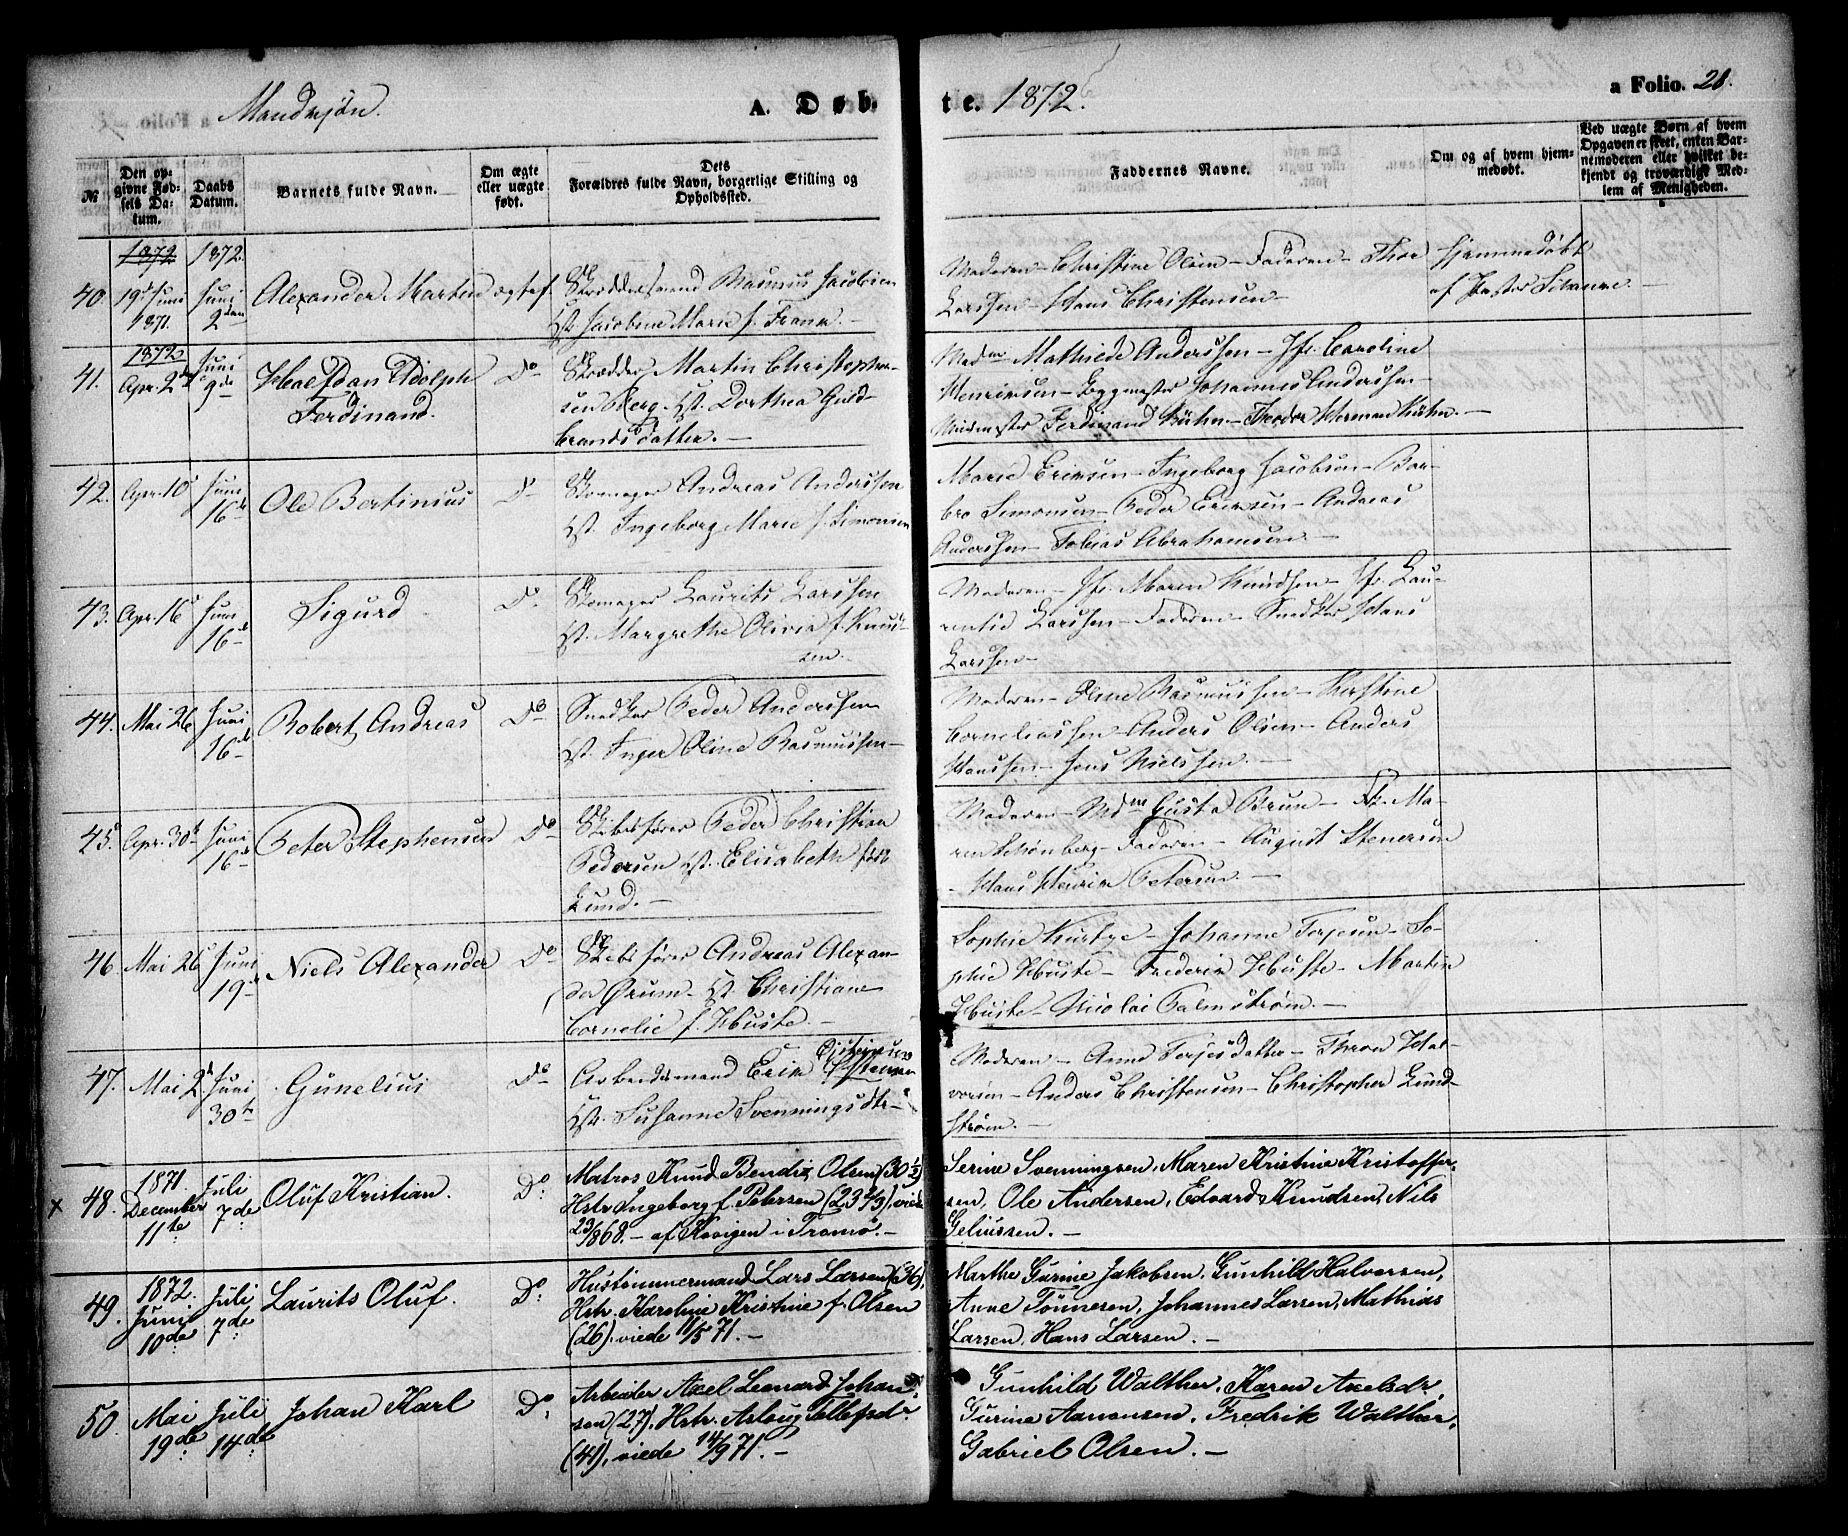 Mandkjøn.
A. Døbte. 1872.
a Folio. 28.
№
Den opgivne Fødsels Datum.
Daabs Datum.
Barnets fulde Navn.
Om ægte eller uægte født.
Dets Forældres fulde Navn, borgerlige Stilling og Opholdssted.
Faddernes Navne.
Om og af hvem hjemmedøbt.
Ved uægte Børn af hvem Opgaven er skeet, enten Barnemoderen eller hvilket bekjendt og troværdigt Medlem af Menigheden.
1872
1872.
40. 19de Juni 1871. Juni 2den Alexander Martin ægte f.
Skrædder Rasmus Jacobsen
Hst. Jacobine Marie f. Frank. —
Moderen — Christine Olsen — Faderen — Thor
Larssen — Hans Christensen —
Hjemmedøbt
af Pastor
41. 1872 Apr. 2den Juni 9de Halfdan Adolph
Ferdinand.
Do
Skrædder Martin Christopher-
sen Berg. Hst. Dorthea Guld-
brandsdatter. —
Madm Mathilde Anderssen — Jfr. Caroline
Henriksen — Bygmester Johannes Anderssen —
Ferdinand Kühn — Theodor Herman Kühn. —
42. Apr. 10d Juni 16de Ole Bertinius Do
Skomager Andreas Anderssen
Hst. Ingeborg Marie f. Simonsen
Marie Eriksen — Ingeborg Jacobsen — Bar-
bro Simonsen — Peder Eriksen — Andreas
Anderssen — Tobias Abrahamsen. —
43. Apr. 16d Juni 16de Sigurd Do
Skomager Laurits Larssen
Hst. Margrethe Olivia f. Knud-
sen.
Moderen — Jfr. Maren Knudsen — Jfr. Lau-
rentie Larssen — Faderen — Snedker Hans
Larssen —
44. Mai 26 Juni 16de Robert Andreas Do
Snedker Peder Anderssen
Hst. Inger Oline Rasmussen —
Moderen — Oline Rasmussen — Kirstine
Corneliassen — Anders Olsen — Anders
Hanssen — Jens Nielssen. —
45. Apr. 30te Juni 16de Peter Stephensen Do
Skibsfører Peder Christian
Pedersen Hst. Elisabeth født
Lund. —
Moderen — Mdm Gusta Brun — Fr. Ma-
ren Schønberg — Faderen — August Stenersen
— Hans Henrik Petersen —
46. Mai 26 Juni 19de Niels Alexander Do
Skibsfører Andreas Alexan-
der Ørum. Hst. Christiane
Cornelie f. Huste. —
Sophie — Johanne Terjesen — So-
phie Huste — Frederik Huste — Martin
Huste — Nicolai Palmstrøm. —
47. Mai 2d Juni 30te Gunelius Do
Arbeidsmand Erik
Hst. Susanne Svenningsdtr —
Moderen — Anne Terjesdatter — Thron Hal-
vorsen — Anders Christensen — Christopher Lund-
strøm. —
x 48. 1871. December 11te Juli 7de Oluf Kristian. Do:
Matros Knud Bendix Olsen (30 1/2)
Hstr. Ingeborg f. Petersen (23 2/3), viede
23/ 868. — af Kovigen i Tromø. —
Serine Svenningsen, Maren Kristine Kristoffer-
sen, Ole Andersen, Edvard Knudsen, Nils
Geliussen. —
49. 1872. Juni 10de Juli 7de Laurits Oluf. Do:
Hustømmermand Lars Larsen (36),
Hstr. Karoline Kristine f. Olsen
(26), viede 11/5 71. —
Marthe Gurine Jakobsen, Gunhild Halvorsen,
Anne Tønnesen, Johannes Larsen, Mathias
Larsen, Hans Larsen. —
50. Mai 19de Juli 14de Johan Karl Do:
Arbeider Axel Leonard Johan-
sen (27), Hstr. Aslaug Tellefsdr
(41), viede 14/9 71. —
Gunhild Walther, Karen Axelsdr,
Gurine Aanonsen, Fredrik Walther,
Gabriel Olsen. —